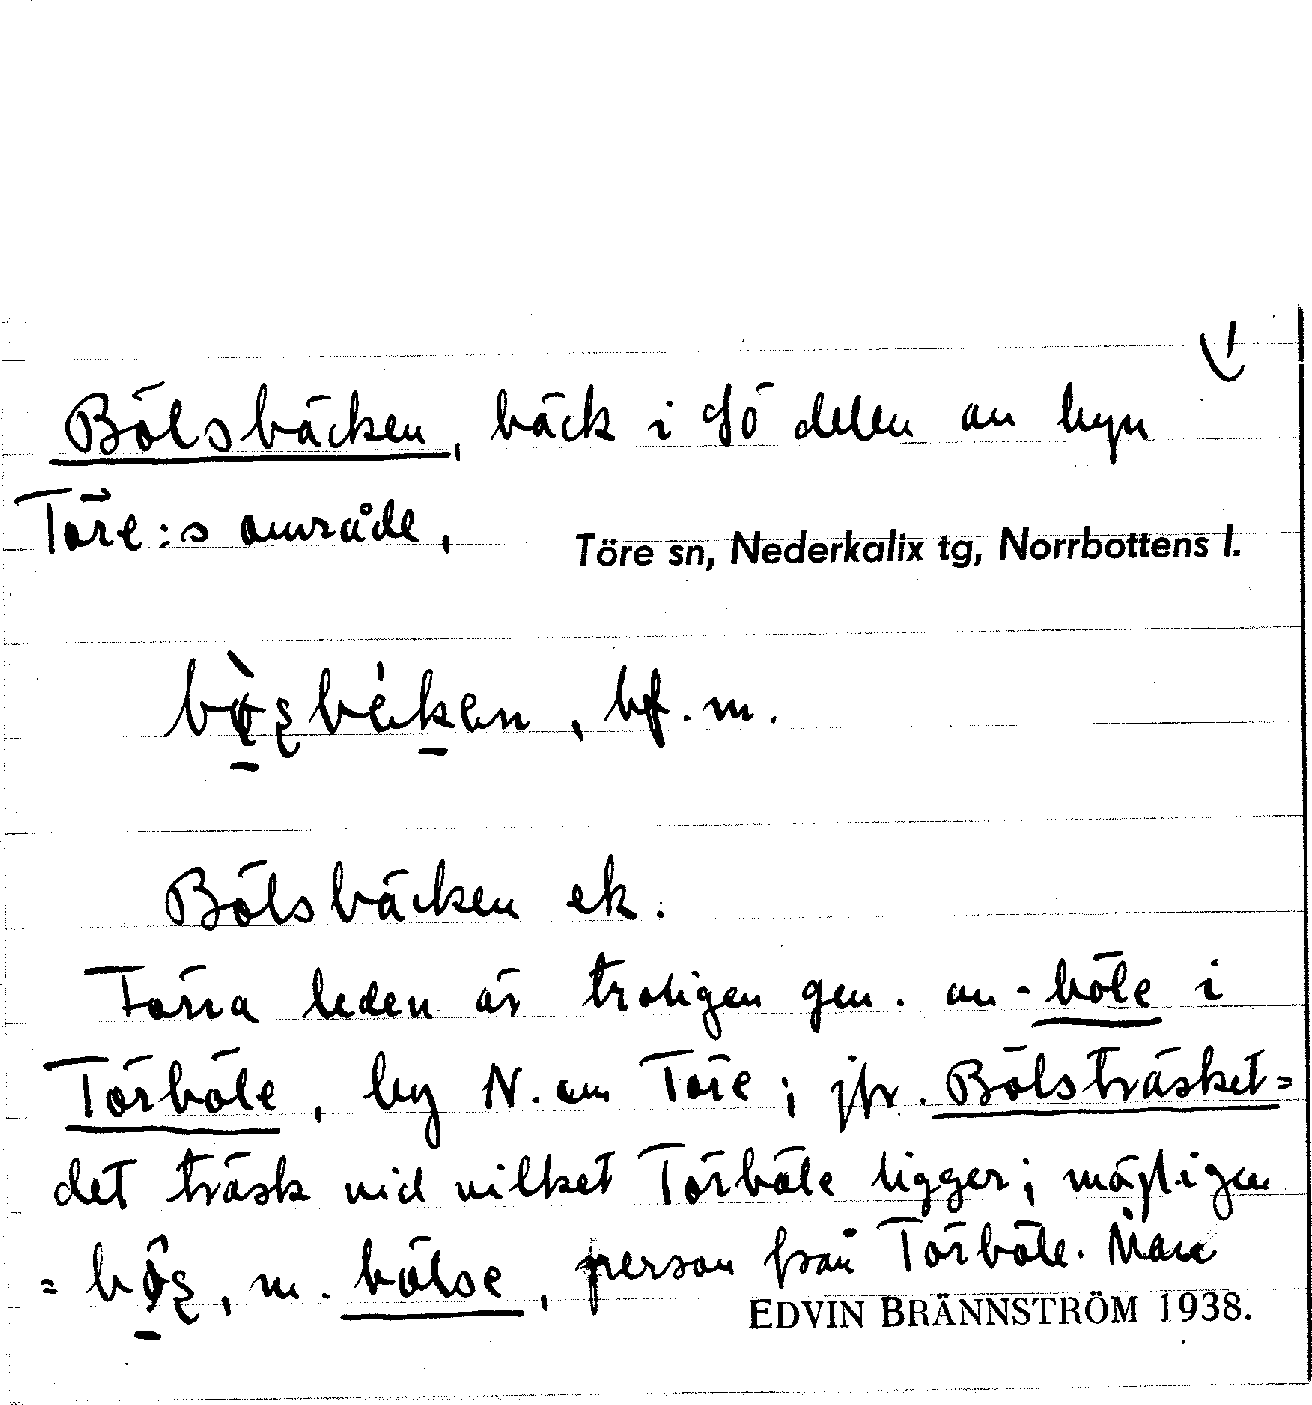 Bölsbäcken, bäck i Sö delen av byn
Töre:s område,
Töre sn, Nederkalix tg, Norrbottens l.
bf. m.
Bölsbäcken ek.
Förra leden är troligen gen. av -böle i
Törböle, by N. om Töre; jfr. Bölsträsket=
det träsk vid vilket Törböle ligger; möjligen
= , m. bölse, person från Törböle. Man
EDVIN BRÄNNSTRÖM 1938.